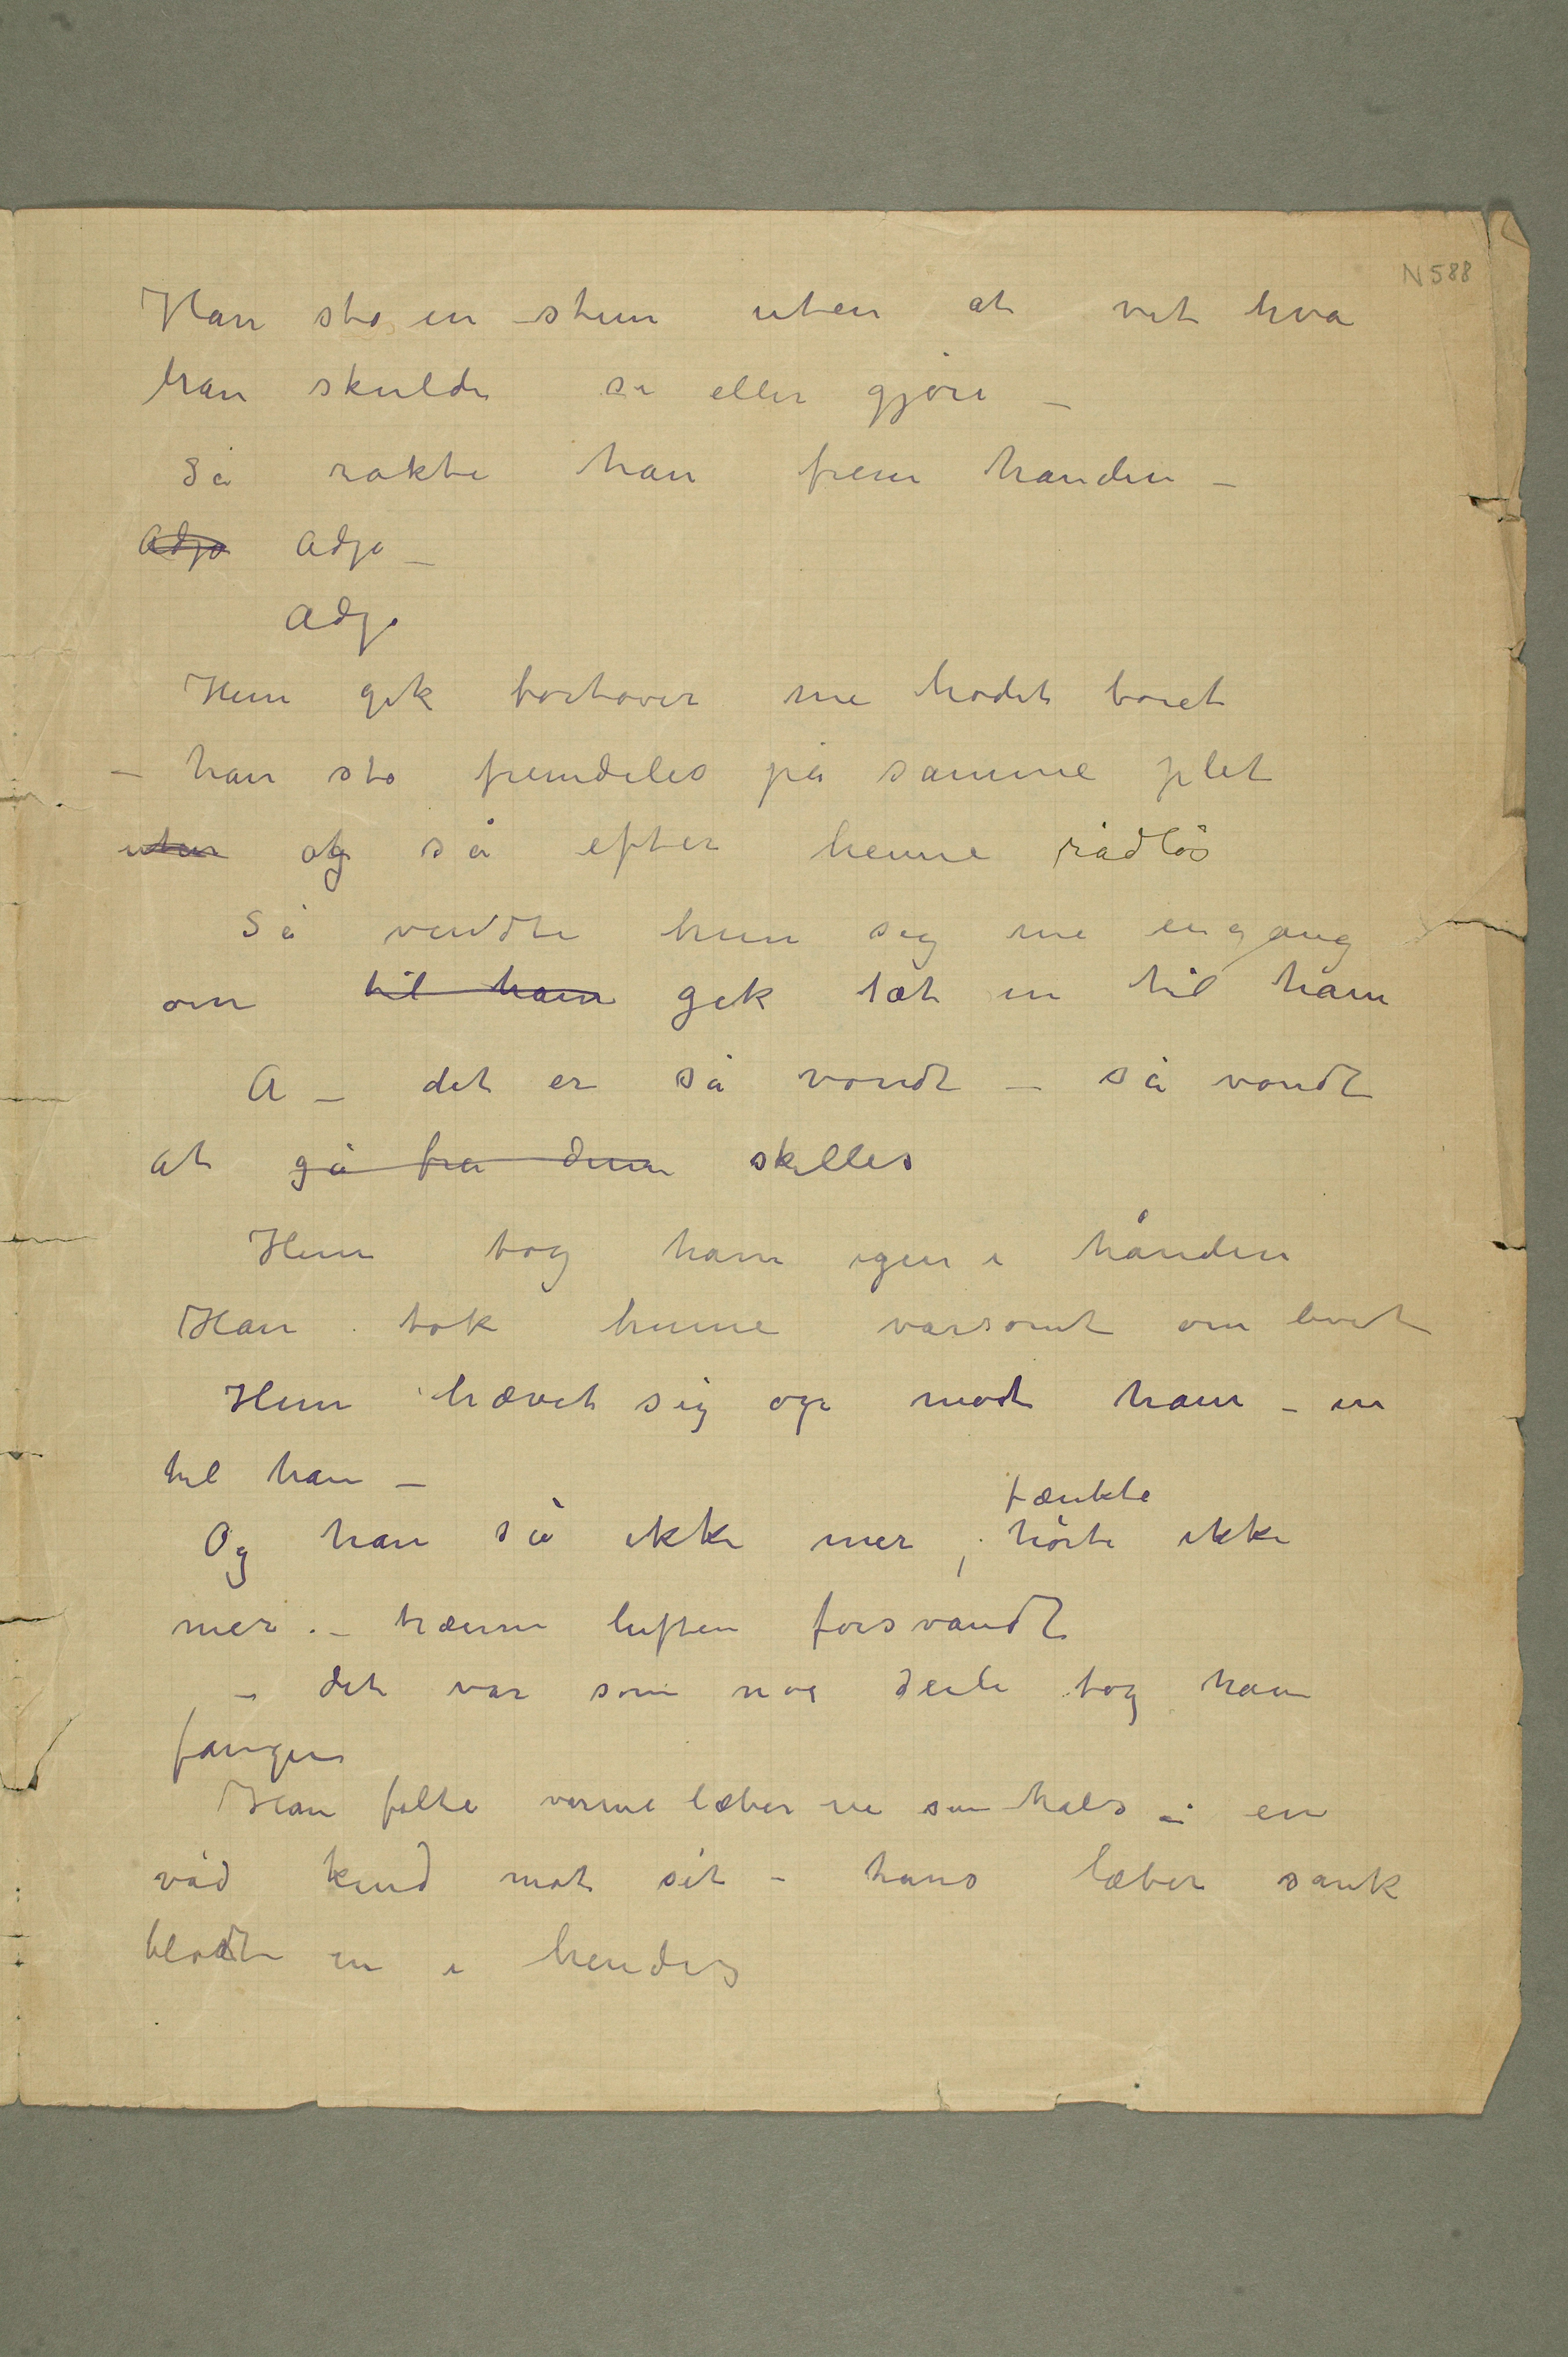 N 588
Han sto en stun uten at vit hva
han skulde si eller gjöre –
Så rakte han frem handen –
Adjø Adjø –
Adjø
Hun gik bortover me hodet boiet
– han sto fremdeles på samme plet
uten og så efter henne rådløs
Så vendte hun seg me engang
om til ham gik tæt in til ham
A – det er så vondt – så vondt
at gå fra dem skilles
Hun tog ham igen i hånden
Han tok henne varsomt om livet
Hun hævet sig op modt ham – in
til ham –
tænkte
Og han så ikke mer, hörte ikke
mer. – trænne luften forsvandt
– det var som noe deili tog ham
fangen
Han følte varme læber ve sin hals – en
våd kind mot sit – hans læber sank
blødt in i hendes